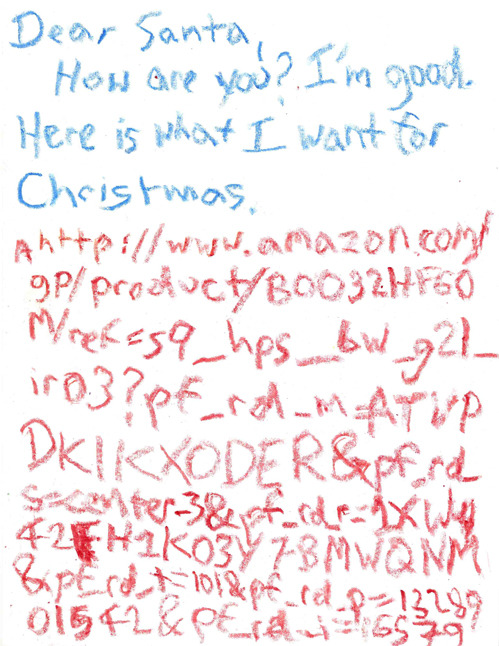 Dear Santa,
How are you? I'm good.
Here is what I want for
Christmas.
A http://www.amazon.com/
gp/product/B0032HF60
M/ref=s9_hps_bw_g21_
ir03?pf_rd_m=ATVP
DKIKX0DER&pf_rd_
s=center-3&pf_rd_r=1XWH
42FH1K03Y78MWQNM
&pf_rd_t=101&pf_rd_p=13289
01542&pf_rd_i=16579